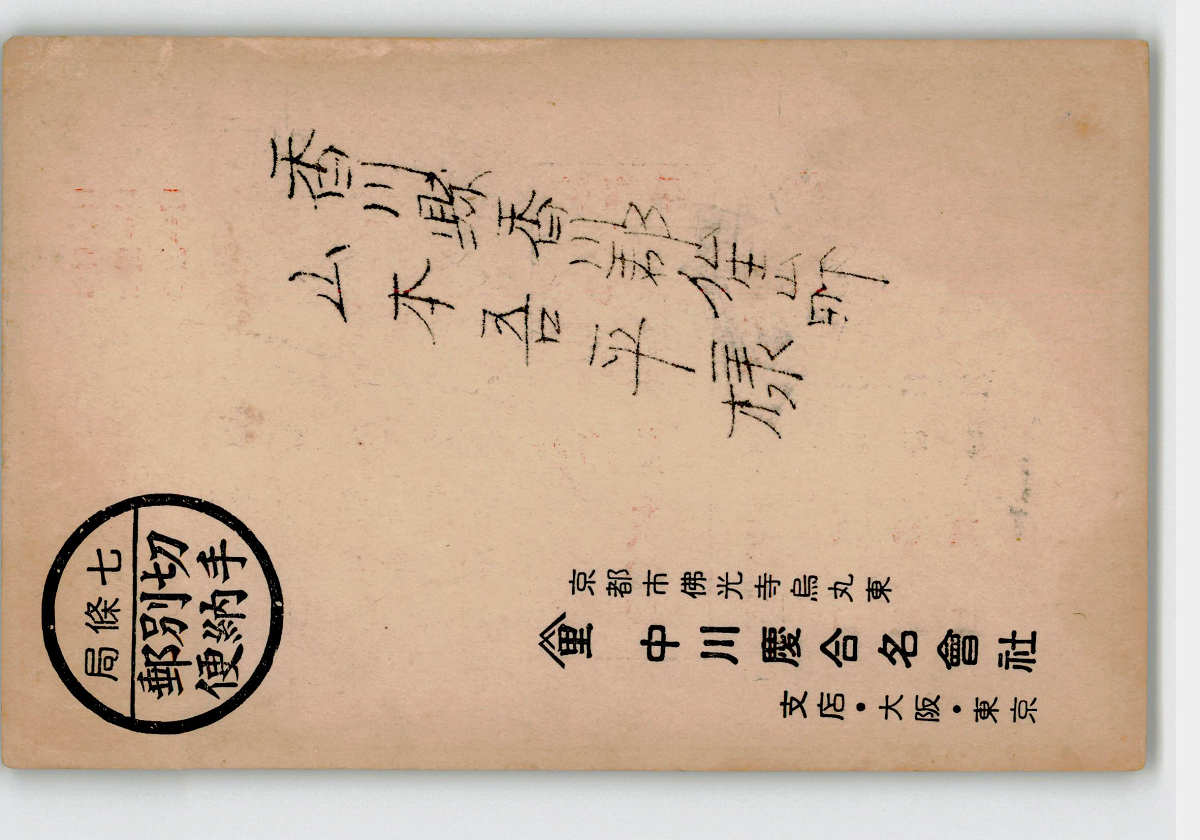 香川縣香川郡仏生山町
山本吾平様
七條局
切手
別納
郵便
京都市佛光寺烏丸東
中川慶合名會社
支店・大阪・東京